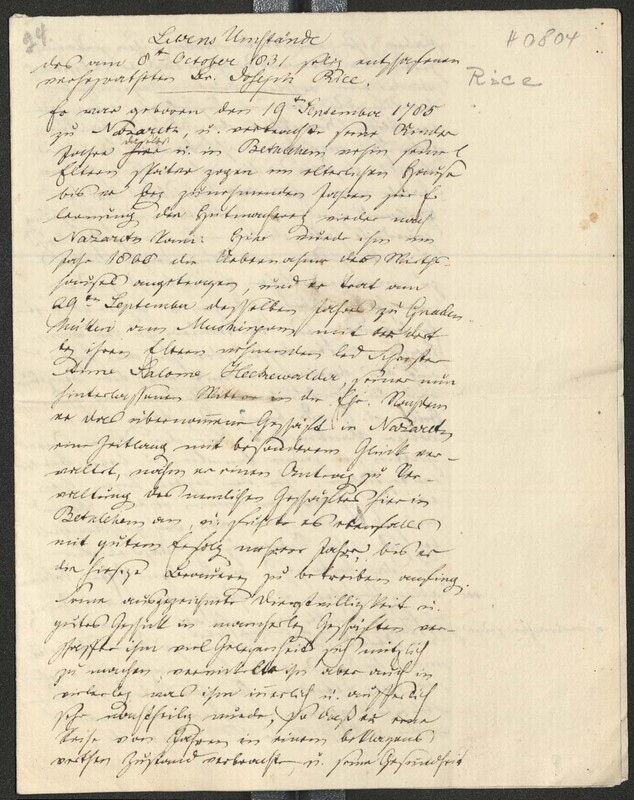 24.
# 0804
Rice
Lebens Umstände
des am 8t October 1831 selig entschlafenen
verheyratheten Br. Joseph Rice.
Er war geboren den 19ten September 1785
zu Nazareth, u. verbrachte seine Kinder
Jahre hier daselbst u. in Bethlehem, wohin seine l.
Eltern später zogen im elterlichen Hause
bis er bey zunehmenden Jahren zur Er-
lernung der Hutmacherey wieder nach
Nazareth kam. Hier wurde ihm im
Jahr 1808 die Uebernahme des Wirths-
hauses angetragen, und er trat am
29ten September desselben Jahres zu Gnaden-
hütten am Muskingum mit der dort
bey ihren Eltern wohnenden led. Schwester
Anna Salome Heckewälder, seiner nun
hinterlassenen Wittwe in die Ehe. Nachdem
er das übernommene Geschäft in Nazareth
eine Zeitlang mit besonderem Glück ver-
waltet, nahm er einen Antrag zu Ver-
waltung des nemlichen Geschäftes hier in
Bethlehem an, u. führte es ebenfalls
mit gutem Erfolg mehrere Jahre, bis er
die hiesige Brauerey zu betreiben anfing.
Seine ausgezeichnete Dienstwilligkeit u.
gutes Geschick in mancherley Geschäften ver-
schaffte ihm viel Gelegenheit sich nützlich
zu machen verwickelte ihn aber auch in
vielerley was ihm innerlich u. äusserlich
sehr nachtheilig wurde, so daß er eine
Reihe von Jahren in einem beklagens
werthen Zustand verbrachte, u. seine Gesundheit